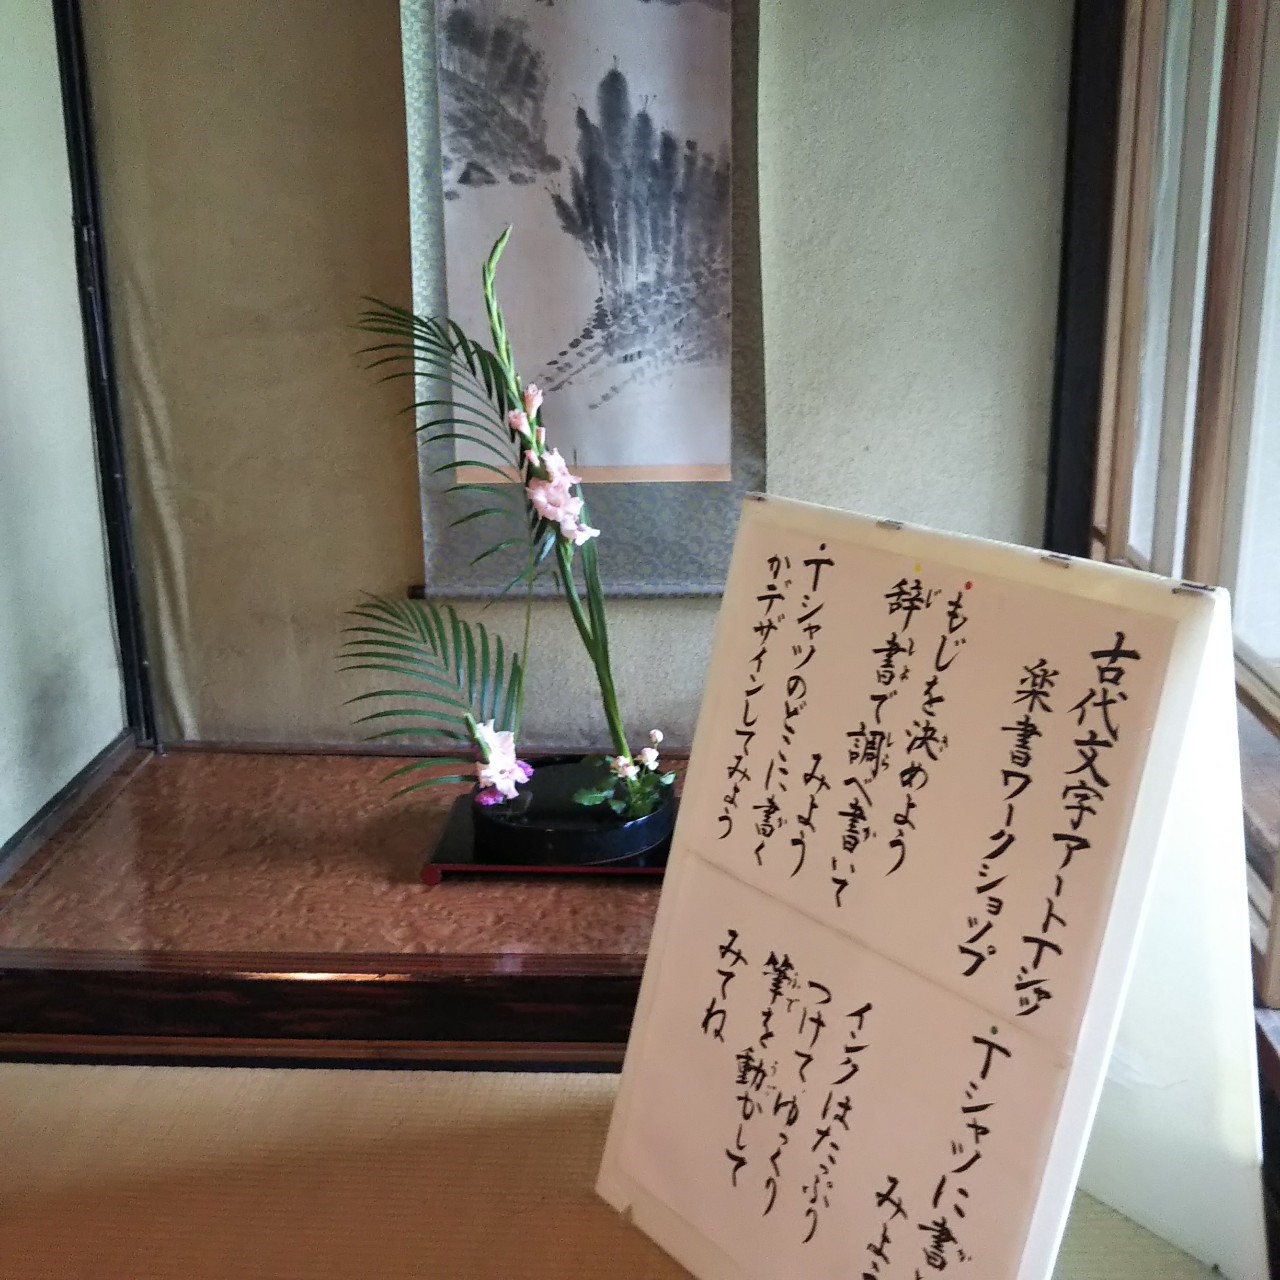 古代文字アートTシャツ
楽書ワークショップ
・もじを決めよう
・辞書で調べ書いて
みよう
・Tシャツのどこに書く
かデザインしてみよう
・Tシャツに書
みよう
インクはたっぷり
つけてゆっくり
筆を動かして
みてね